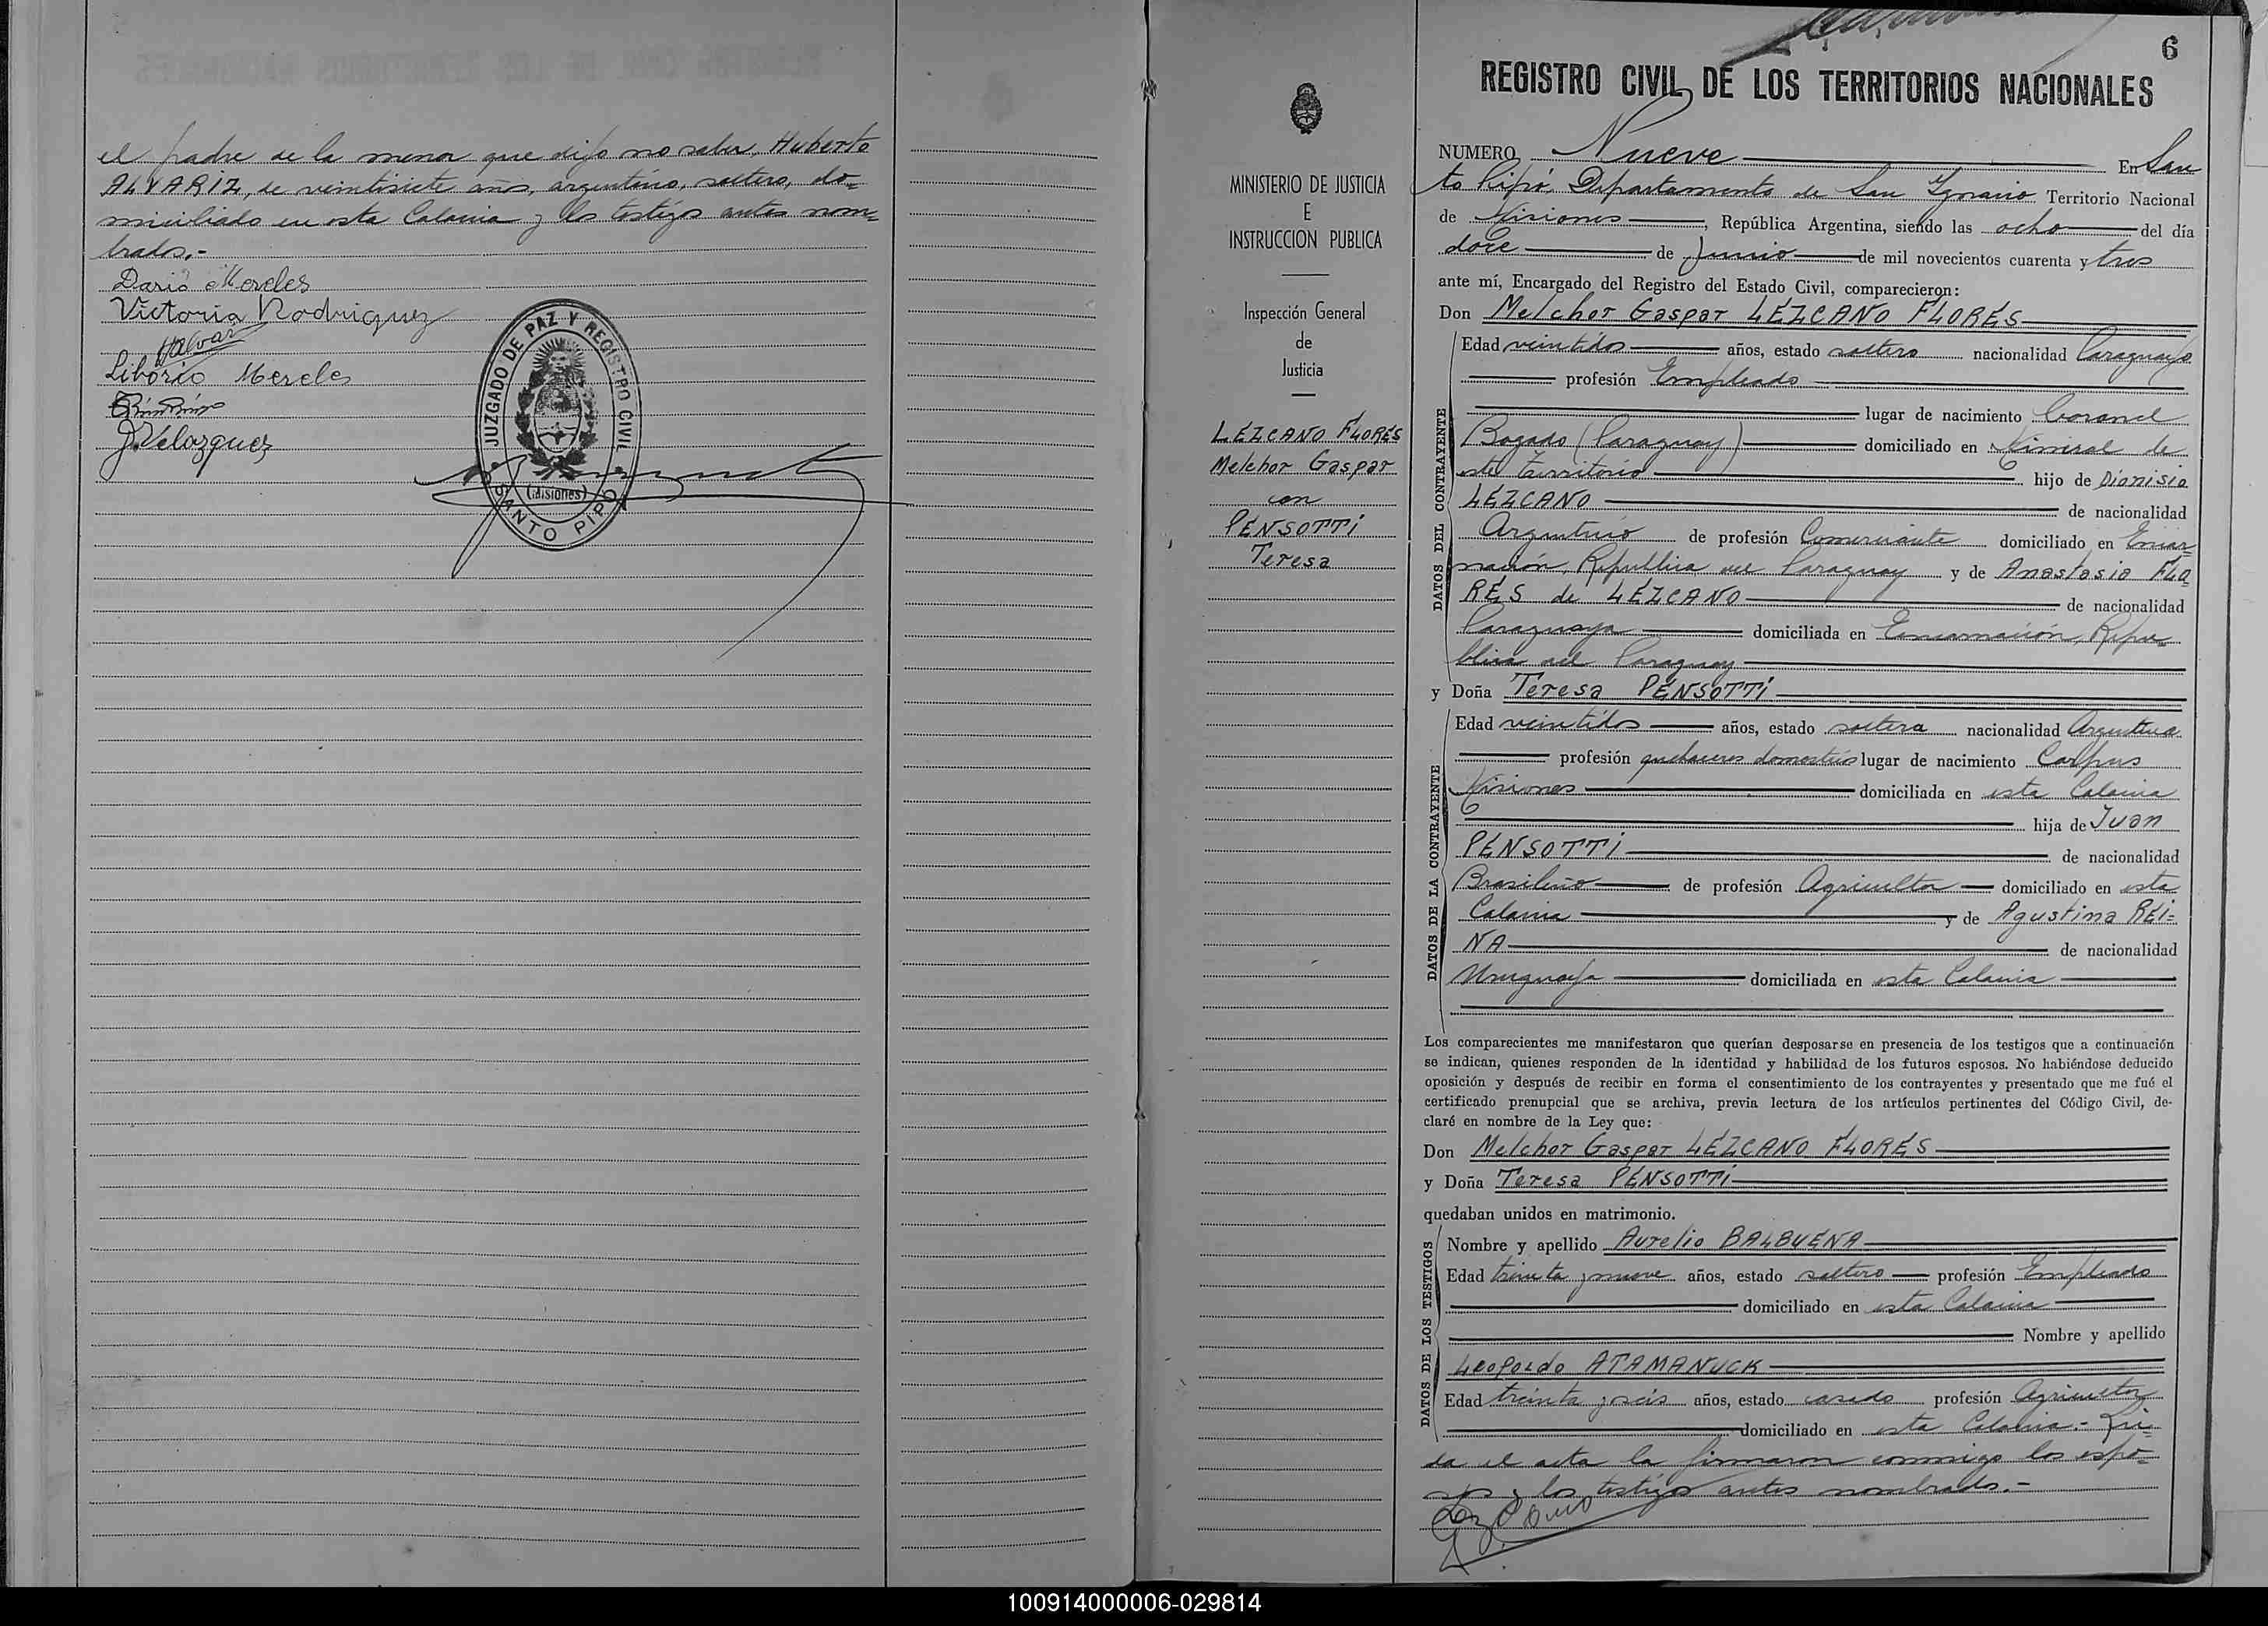 el padre de la menor que dijo no saber, Huberto
ALVARIZ, de veintisiete años, argentino, soltero, do=
miciliado en esta Colonia y los testigos antes nom=
brados.-
Dario Mereles
Victoria Rodriguez
HAlvar
Liborio Mereles
J. Velazquez
JUZGADO DE PAZ Y REGISTRO CIVIL
(Misiones)
SANTO PIPO
6
REGISTRO CIVIL DE LOS TERRITORIOS NACIONALES
MINISTERIO DE JUSTICIA
E
INSTRUCCION PUBLICA
Inspección General
de
Justicia
LEZCANO FLORES
Melchor Gaspar
con
PENSOTTI
Teresa
NUMERO Nueve En San
to Pipó, Departamento de San Ygnacio Territorio Nacional
de Misiones, República Argentina, siendo las ocho del día
doce de Junio de mil novecientos cuarenta y tres
ante mí, Encargado del Registro del Estado Civil, comparecieron:
Don Melchor Gaspar LEZCANO FLORES
DATOS DEL CONTRAYENTE
Edad veintidos años, estado soltero nacionalidad Paraguayo
profesión Empleado
lugar de nacimiento Coronel
Bogado (Paraguay) domiciliado en Mineral de
este Territorio hijo de Dionisio
LEZCANO de nacionalidad
Argentino de profesión Comerciante domiciliado en Encar=
nación, Republica del Paraguay y de Anastasia FLO=
RES de LEZCANO de nacionalidad
Paraguaya domiciliada en Encarnación, Repu=
blica del Paraguay
y Doña Teresa PENSOTTI
DATOS DE LA CONTRAYENTE
Edad veintidos años, estado soltera nacionalidad Argentina
profesión quehaceres domesticos lugar de nacimiento Corpus
Misiones domiciliada en esta Colonia
hija de Juan
PENSOTTI de nacionalidad
Brasileño de profesión Agricultor domiciliado en esta
Colonia y de Agustina REI=
NA de nacionalidad
Uruguaya domiciliada en esta Colonia
Los comparecientes me manifestaron que querían desposarse en presencia de los testigos que a continuación
se indican, quienes responden de la identidad y habilidad de los futuros esposos. No habiéndose deducido
oposición y después de recibir en forma el consentimiento de los contrayentes y presentado que me fué el
certificado prenupcial que se archiva, previa lectura de los artículos pertinentes del Código Civil, de-
claré en nombre de la Ley que:
Don Melchor Gaspar LEZCANO FLORES
y Doña Teresa PENSOTTI
quedaban unidos en matrimonio.
DATOS DE LOS TESTIGOS
Nombre y apellido Aurelio BALBUENA
Edad treinta y nueve años, estado soltero profesión Empleado
domiciliado en esta Colonia
Nombre y apellido
Leopoldo ATAMANUCK
Edad treinta y seis años, estado casado profesión Agricultor
domiciliado en esta Colonia.- Lei=
da el acta la firmaron conmigo los espo=
sos y los testigos antes nombrados.-
Lezcano
100914000006-029814